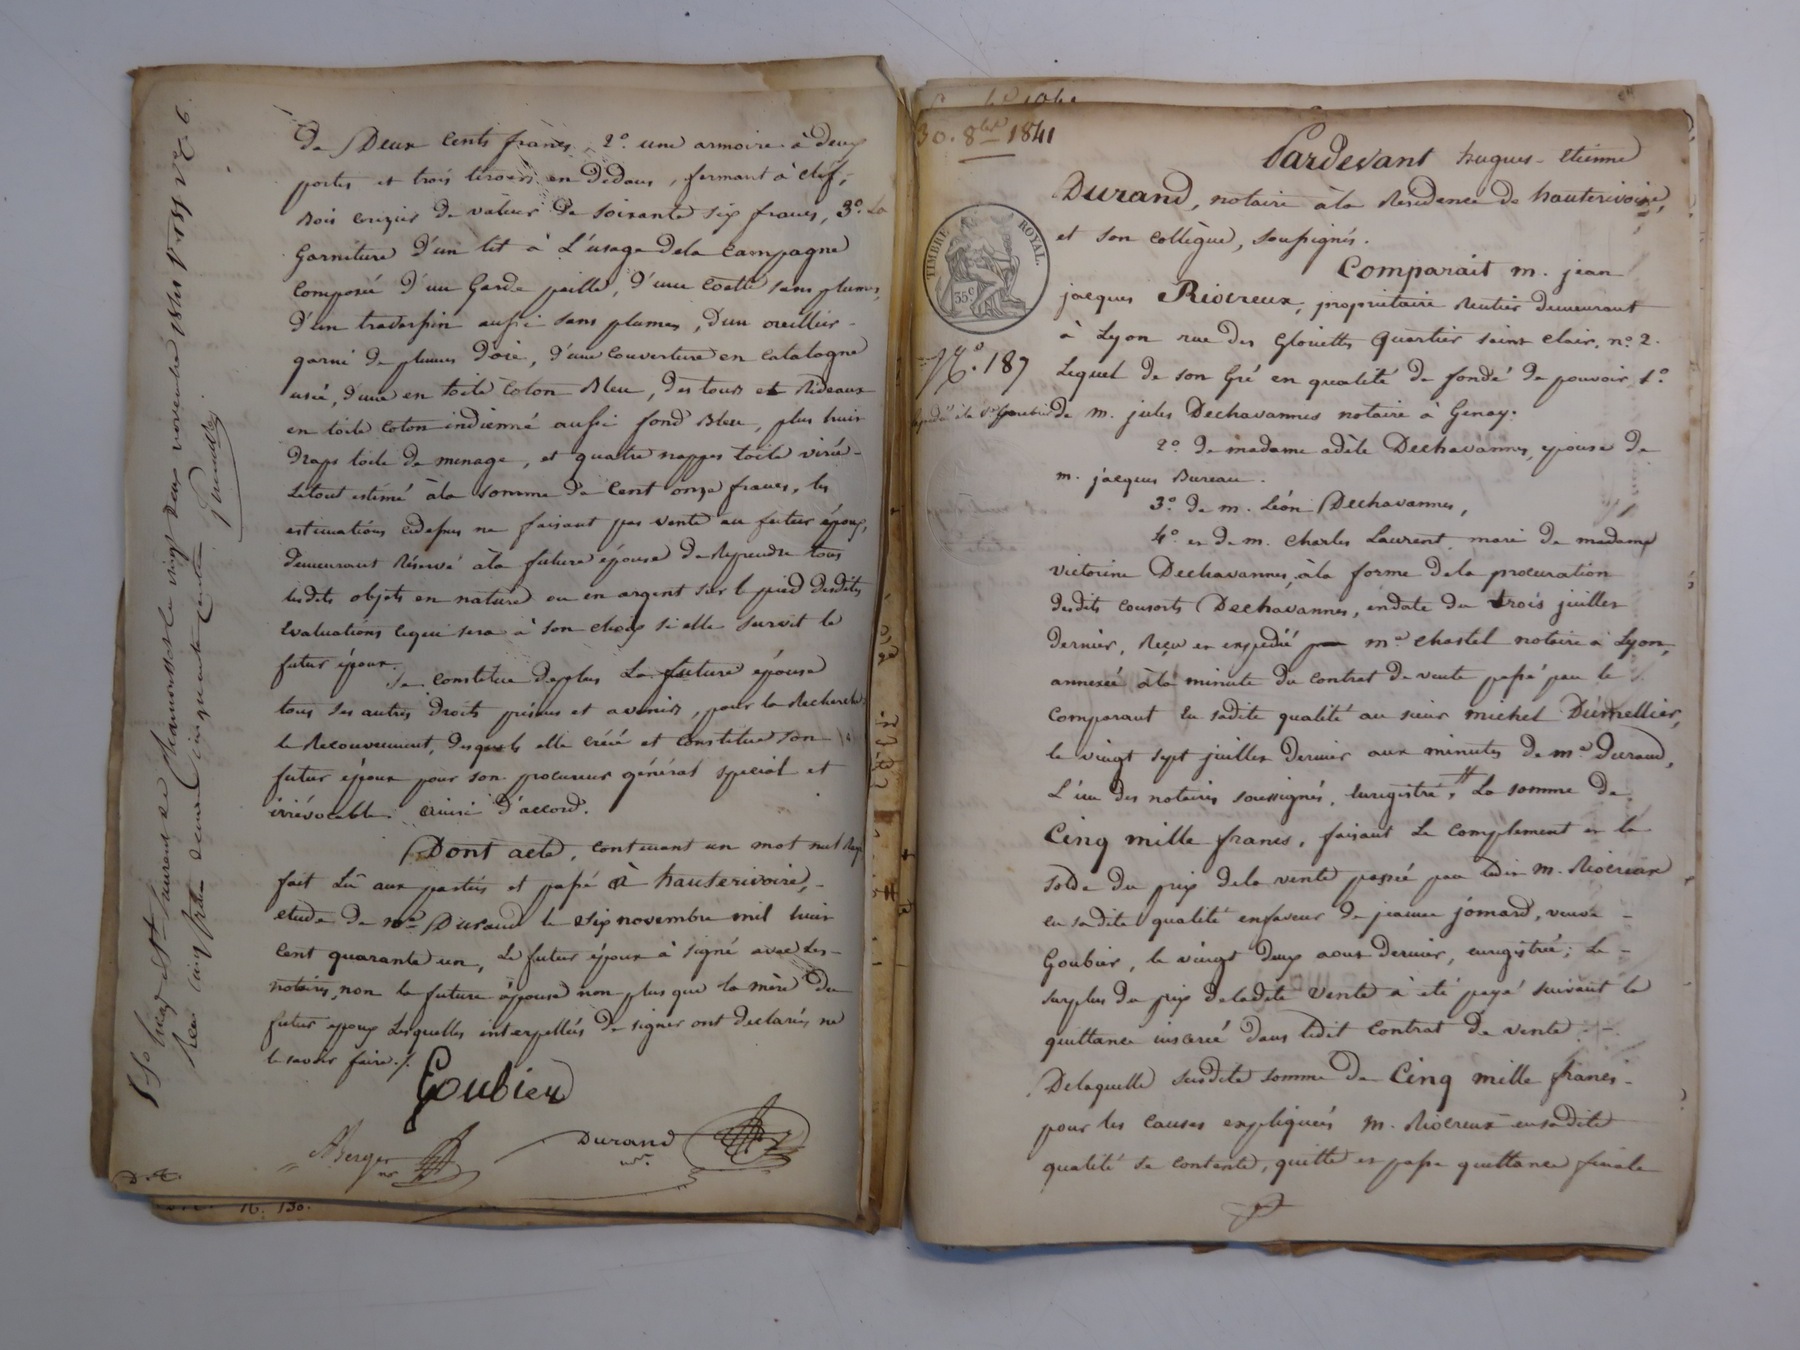 de Deux cents francs, 2.° une armoire à deux
portes et trois tiroirs en dedans, fermant à clef,
Bois cerizier de valeur de soixante six francs, 3.° La
Garniture d'un lit à L'usage dela Campagne
Composée d'un Garde paille, d'une coëtte sans plumes,
d'un traversin aussi sans plumes, d'un oreiller
garni de plumes d'oie, d'une couverture en catalogne
usée, d'une en toile coton Bleu, des tours et Rideaux
en toile coton indienné aussi fond Bleu, plus huit
draps toile de menage, et quatre nappes toile
Letout estimé àla somme de Cent onze francs, les
estimations cidessus ne faisant pas vente au futur époux,
demeurant Réservé àla future épouse de Reprendre tous
lesdits objets en nature ou en argent sur le pied desdites
évaluations cequi sera à son choix si elle survit le
futur époux.
Se Constitue deplus La future épouse
tous ses autres droits présens et avenirs, pour la Recherche
le Recouvrement, desquels elle créé et Constitue son
futur époux pour son procureur général spécial et
irrévocable. ainsi d'accord.
Dont acte, contenant un mot nul Rayé
fait Lû aux parties et passé à hauterivoire,
etude de me Durand le six novembre mil huit
cent quarante un, Le futur époux à signé avec les
notaires, non la future épouse non plus que la mère du
futur époux Lesquelles interpellées de signer ont déclarées ne
le savoir faire ./.
Goubier
ABerger
nre
Durand
nre
St Laurent de Chamousset le vingt deux novembre 1841 f° 155 V° c. 6.
Reçu cinq francs decime Cinquante Centimes
16. 130.
30. 8bre 1841
TIMBRE ROYAL.
35c
N.° 187
Pardevant hugues-etienne
Durand, notaire àla Résidence de hauterivoire,
et son collègue, soussignés.
Comparait m. jean
jacques Rivereux, propriétaire Rentier demeurant
à Lyon rue des Glouettes Quartier saint Clair, n.° 2.
Lequel de son Gré en qualité de fondé de pouvoir, 1.°
de m. jules Dechavannes notaire à Genay.
2.° de madame adèle Dechavannes, épouse de
m. jacques Bureau.
3.° de m. Léon Dechavannes,
4.° et de m. Charles Laurent mari de madame
victorine Dechavannes, àla forme dela procuration
desdits consorts Dechavannes, endate du trois juillet
dernier, Reçu et expédié par me Chastel notaire à Lyon,
annexée àla minute du contrat de vente passé par le
Comparant en sadite qualité au sieur michel Dumellier,
le vingt sept juillet dernier aux minutes de me Durand,
L'un des notaires soussignés, Enregistré, La somme de
Cinq mille francs, faisant Le complement et le
solde du prix dela vente passée par ledit m. Rivereux
en sadite qualité enfaveur de jeanne jomard, veuve
Goubier, le vingt deux aout dernier, enregistrée; Le
surplus du prix deladite vente à été payé suivant la
quittance inserée dans ledit Contrat de vente.
Delaquelle susdite somme de Cinq mille francs
pour les causes expliquées m. Rivereux ensadite
qualité se contente, quitte et passe quittance finale